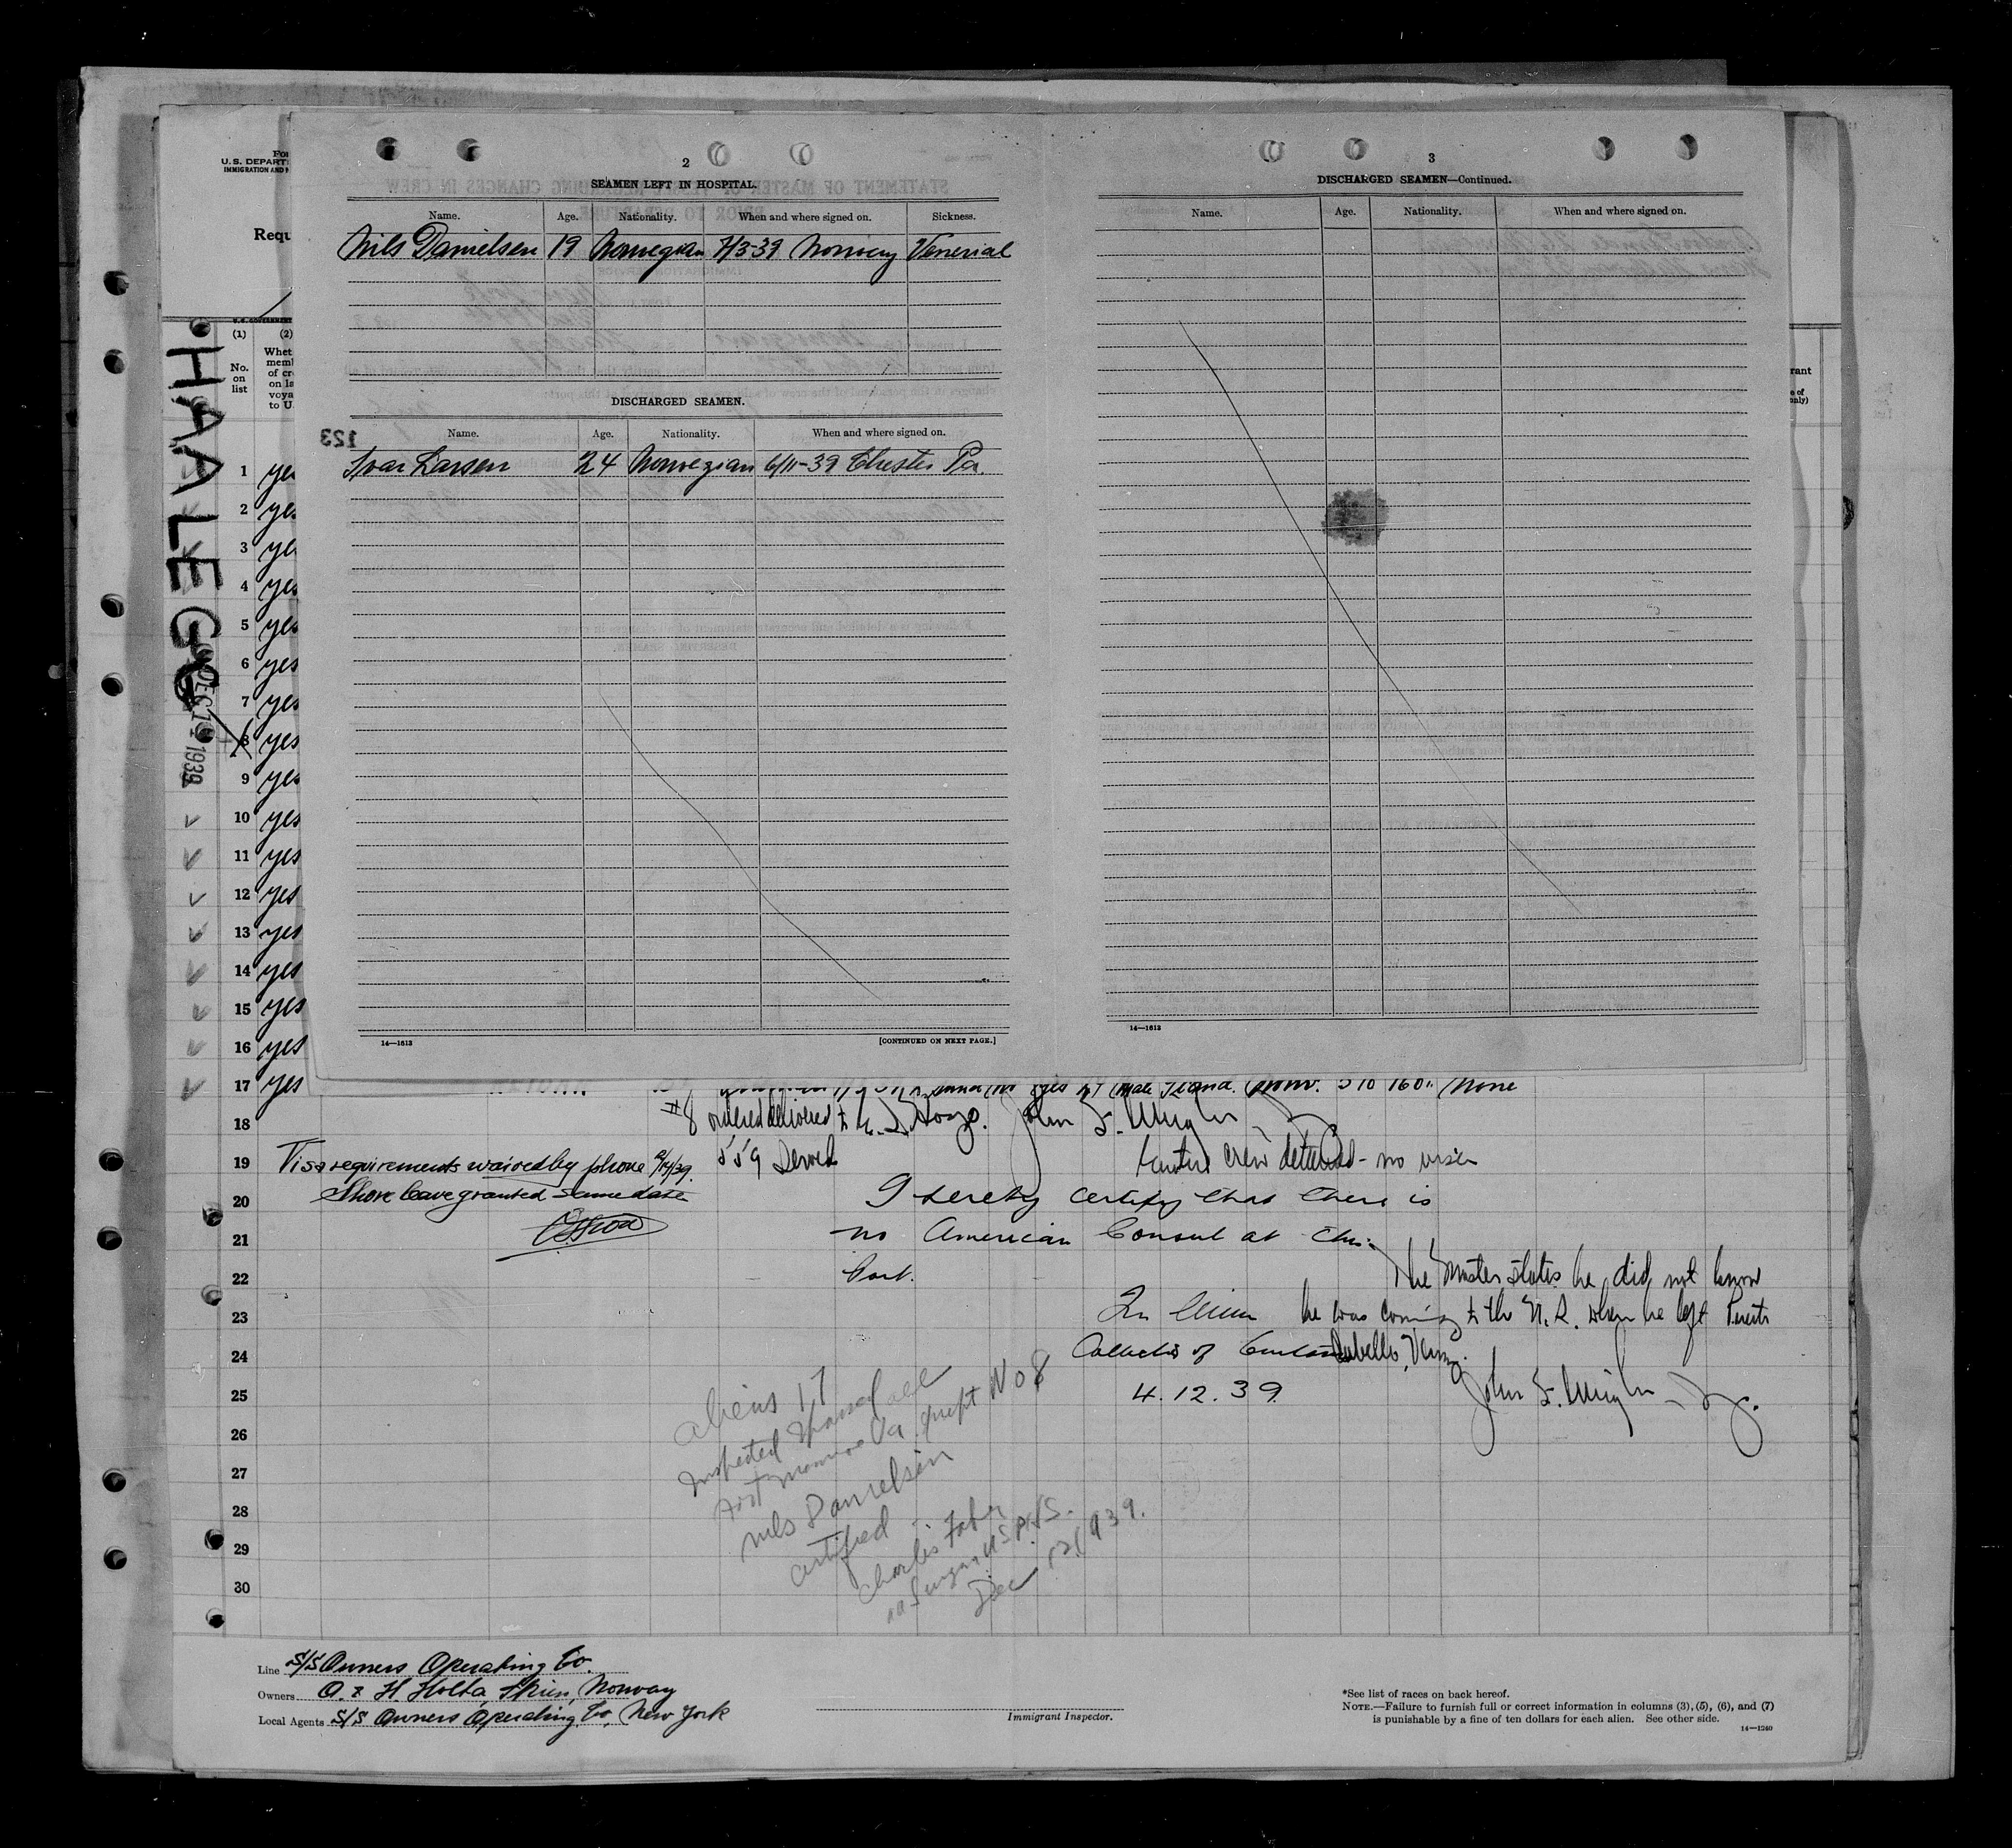 2
SEAMEN LEFT IN HOSPITAL.
Name. Age. Nationality. When and where signed on. Sickness.
Nils Danielsen 19 Norwegian 7/3-39 Norway Venerial
DISCHARGED SEAMEN.
Name. Age. Nationality. When and where signed on.
Ivar Larsen 24 Norwegian 6/11-39 Chester Pa.
14—1613
[CONTINUED ON NEXT PAGE.]
3
DISCHARGED SEAMEN—Continued.
Name. Age. Nationality. When and where signed on.
14—1613
123
U.S. DEPART
IMMIGRATION AND
Requ
(1) (2)
No. on list
Whet
memb
of cr
on la
voya
to U.
rant
e of
only)
HAALEGG
DEC 1939
1 yes
2 yes
3 yes
4 yes
5 yes
6 yes
7 yes
8 yes
9 yes
10 yes
11 yes
12 yes
13 yes
14 yes
15 yes
16 yes
17 yes
18
19
20
21
22
23
24
25
26
27
28
29
30
yes Male Scand. Norw. 5 10 160 None
#8 ordered delivered to John F.
559 Served
Entire crew detained - no visa
Visa requirements waived by phone
Shore leave granted same date
I hereby certify that there is
no American Consul at this
Port.
The Master states he did not know
he was coming to the U.S. when he left Puerto
Cabello, Venz.
Collector of Customs
4.12.39
John F.
Aliens 17
Inspected & passed all
Fort Monroe Va. except No 8
Nils Danielsen
certified
Charles
Surgeon U.S.P.H.S.
Dec 1939.
Line S/S Owners Operating Co.
Owners O. & H. Holta, Skien, Norway
Local Agents S/S Owners Operating Co, New York
Immigrant Inspector.
*See list of races on back hereof.
NOTE.—Failure to furnish full or correct information in columns (3), (5), (6), and (7)
is punishable by a fine of ten dollars for each alien. See other side.
14—1240